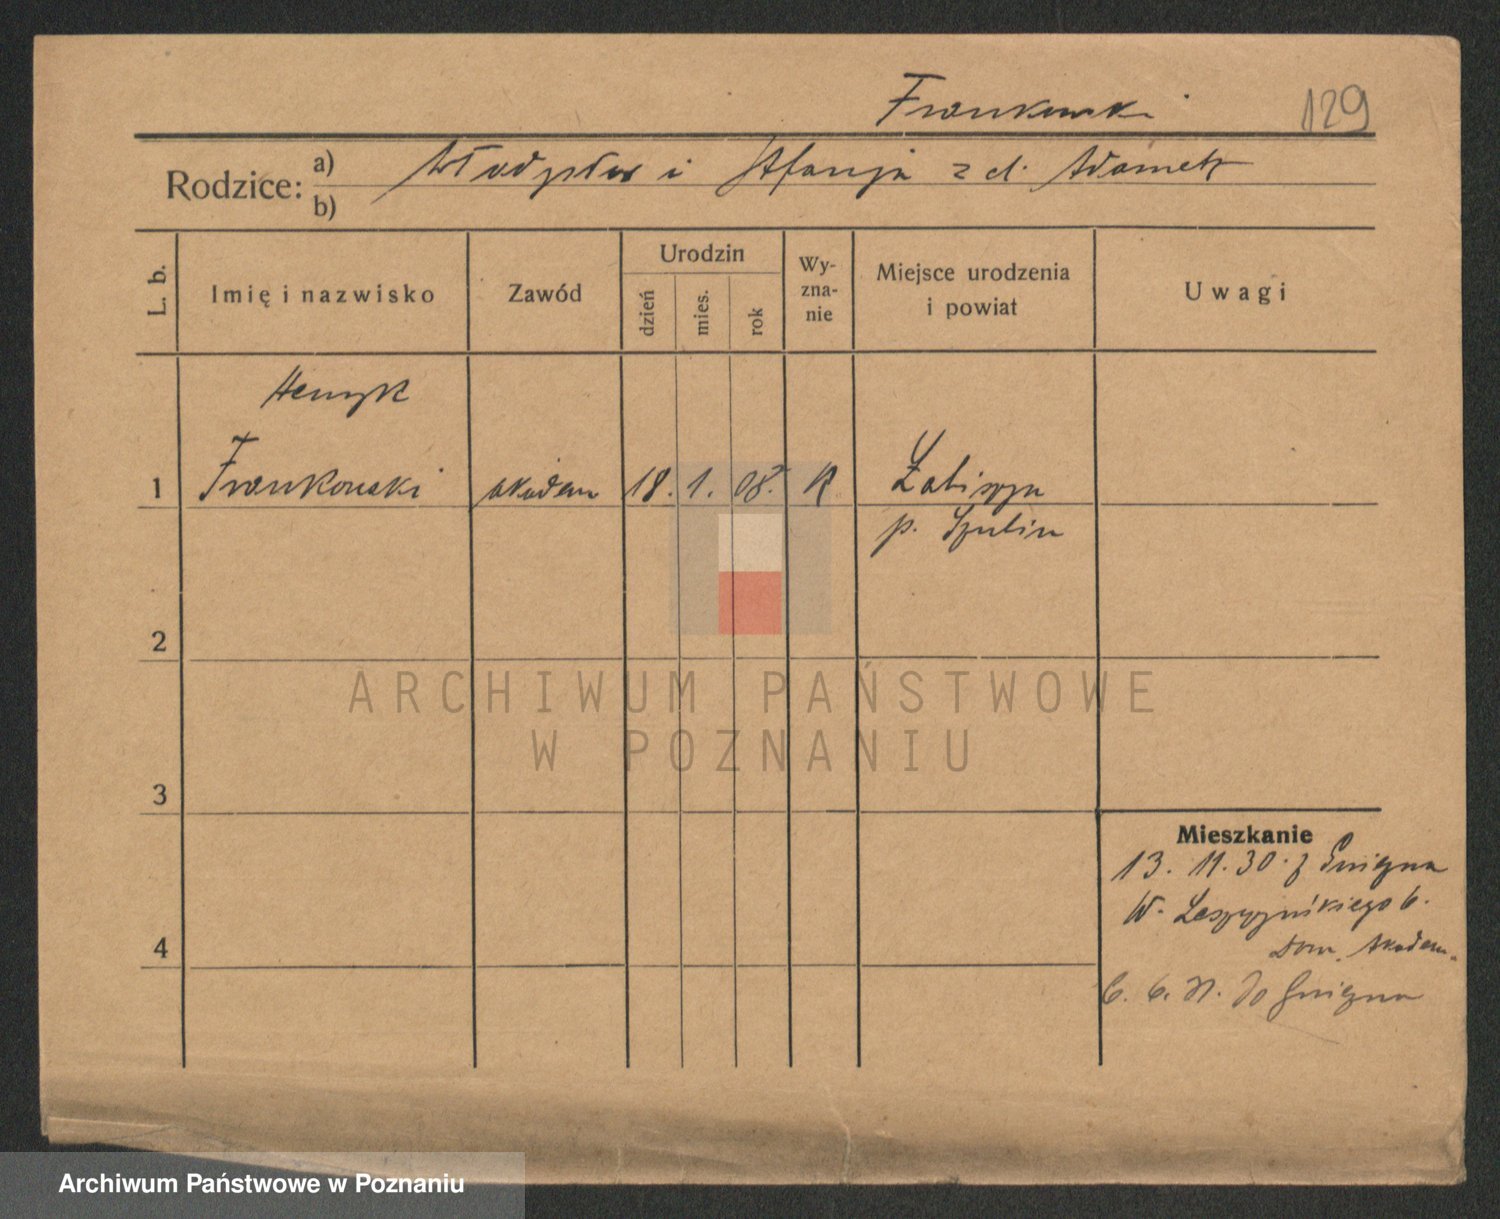 Frankowski 129
Rodzice:
a) Władysław i Stefanja z d. Adamek
b)
L. b. Imię i nazwisko Zawód Urodzin Wy-zna-nie Miejsce urodzenia i powiat Uwagi
dzień mies. rok
Henryk
1 Frankowski akadem 18. 1. 08. R. Łabiszyn
p. Szubin
2
ARCHIWUM PAŃSTWOWE
W POZNANIU
3
Mieszkanie
13. 11. 30. z Gniezna
W. Leszczyńskiego 6.
Dom. Akadem.
4
6. 6. 31. do Gniezna
Archiwum Państwowe w Poznaniu